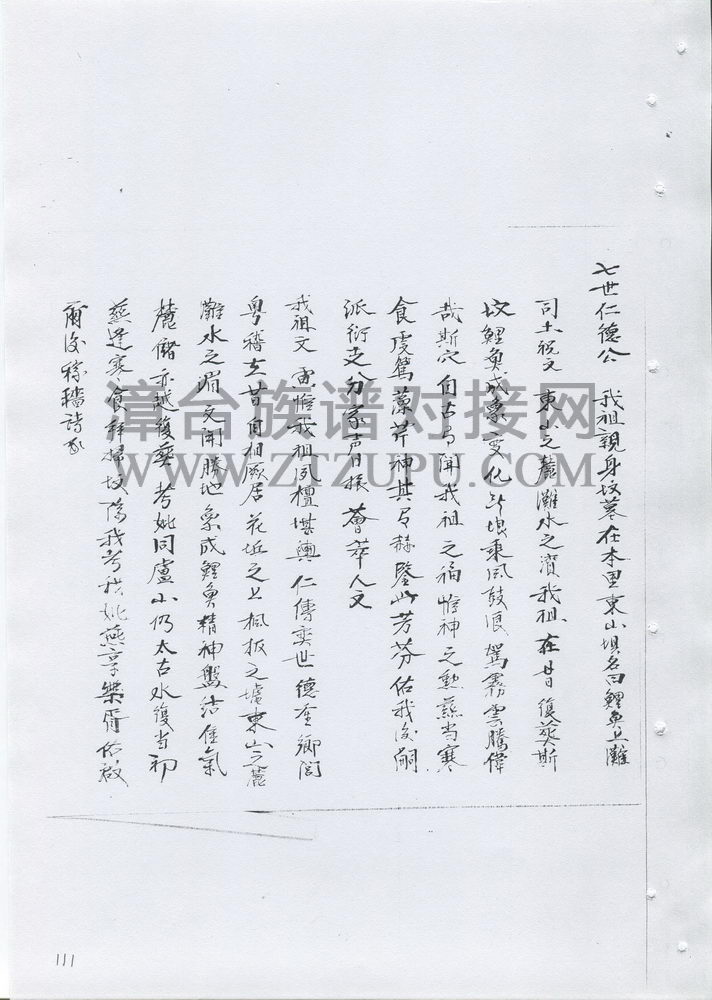 七世仁德公 我祖親身坟墓在本里東山坝名曰鯉魚上灘
司土祝文 東山之麓灘水之濱我祖在昔復葬斯
坟鯉魚成象变化乘風鼓浪駕霧雲騰偉
哉斯穴自古有聞我祖之福惟神之勲兹当寒
食虔篤藻芹神其有赫鑒此芳芬佑我後嗣
派衍支分家声日振薈萃人文
我祖文 惟我祖夙擅堪輿仁傳奕世德重鄉閭
粤稽在昔自相厥居花坵之上楓板之墟東山之麓
灘水之湄文開勝地象成鯉魚精神盤結佳氣
麓儲亦越復葬考妣同盧山仍太古水復当初
兹逢寒食拜掃坟除我考我妣燕享樂胥佑啟
爾後
漳台族谱对接网
WWW.ZTZUPU.COM
111